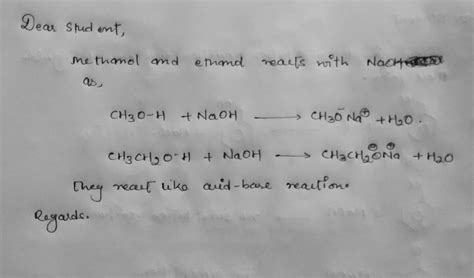 Dear Student,
methanol and ethanol reacts with NaOH
as,
CH3O-H + NaOH ⟶ CH3O⁻ Na⊕ + H2O.
CH3CH2O-H + NaOH ⟶ CH3CH2O⊖Na⊕ + H2O
They react like acid-base reaction.
Regards.